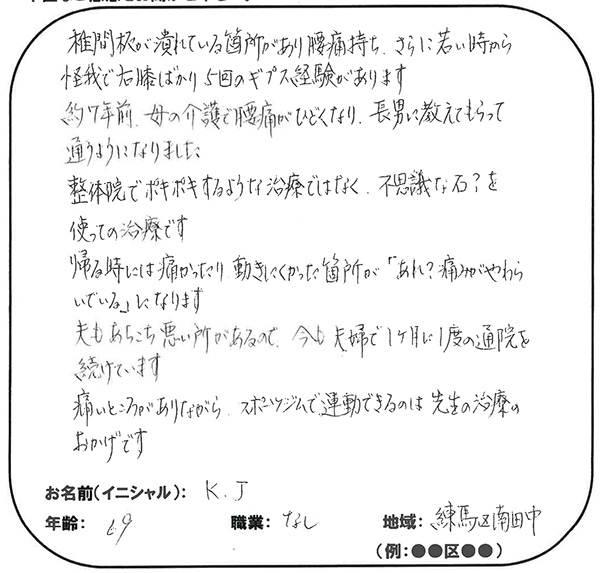 椎間板が潰れている箇所があり腰痛持ち、さらに若い時から
怪我で右膝ばかり5回のギプス経験があります
約7年前、母の介護で腰痛がひどくなり、長男に教えてもらって
通うようになりました
整体院でポキポキするような治療ではなく、不思議な石?を
使っての治療です
帰る時には痛かったり動きにくかった箇所が「あれ?痛みがやわら
いでいる」になります
夫もあちこち悪い所があるので、今も夫婦で1ヶ月に1度の通院を
続けています
痛いところがありながら、スポーツジムで運動できるのは先生の治療の
おかげです
お名前(イニシャル): K.J
年齢: 69 職業: なし 地域: 練馬区南田中
(例:●●区●●)